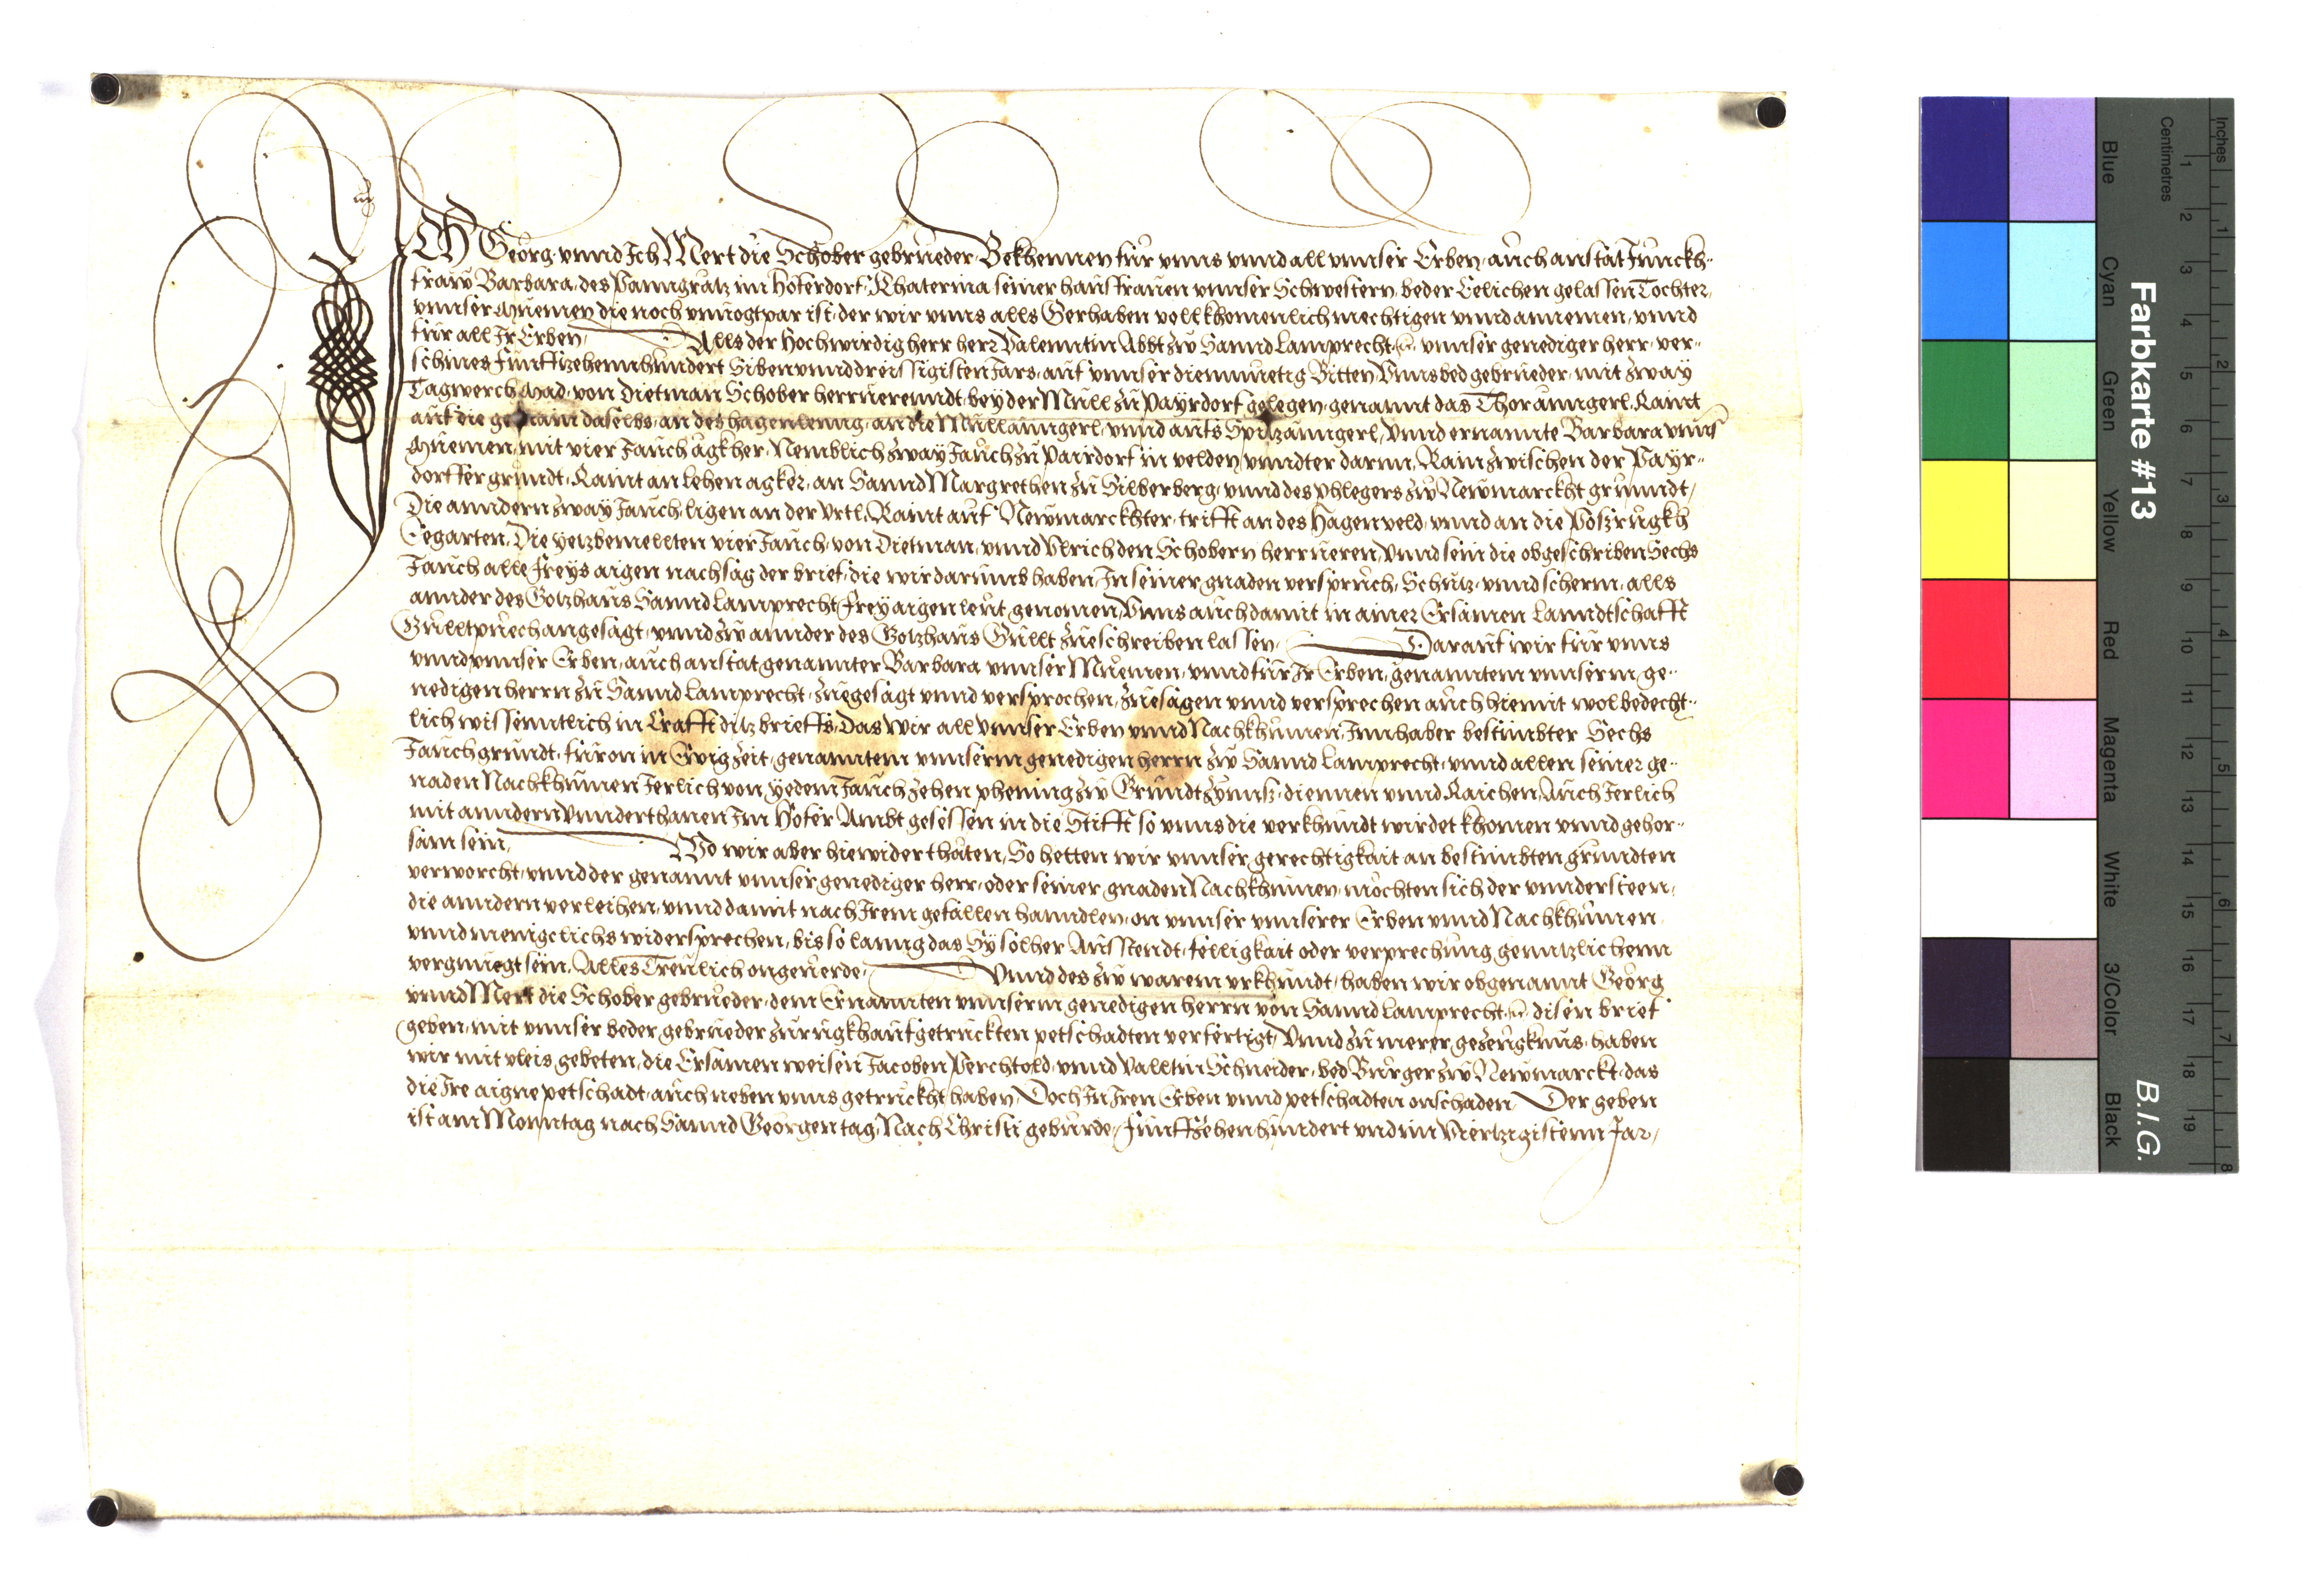 ICH Georg vnnd Ich Mert die Schober gebrüeder Bekhennen für vnns vnnd all vnnser Erben, auch anstat Junckh-
fraw Barbara, des Panngrätz im Hoferdorf, Khaterina seiner hausfrauen vnnser Schwestern, beder Eelichen gelassen Tochter,
vnnser Muemen die noch vnuogtpar ist, der wir vnns alls Gerhaben vollkhomenlich mechtigen vnnd annemen, vnnd
für all Ir Erben, Alls der Hochwirdig herr herr Valenntin Abbt zw Sannd Lamprecht vnnser genediger herr, ver-
schines Funffzehennhundert Siben vnnd dreissigisten Jars, auf vnnser diemuetig Bitten, Vnns bed gebrueder, mit zway
Tagwerch Mad, von Dietman Schober herruerenndt, bey der Müll zu Payrdorf gelegen, genannt das Thoraungerl, Raint
auf die gemain daselbs, an des hagenlenng, an die Mullaunngerl, vnnd aufs Spitzaunngerl, Vnnd ernannte Barbara vnns
Muemen, mit vier Jauch ägkher, Nemblich zway Jauch zu Pairdorf in velden, vnndter darnn, Rain zwischen der Payr-
dorffer grundt, Raint an lehen agker, an Sannd Margrethen zu Silberberg, vnnd des phlegers zw Newmarckht grunndt,
Die anndern zway Jauch, ligen an der Vrtl, Raint auf Newmarckhter, trifft an des Hagenveld, vnnd an die Poszrugkh
Eegarten, Die yetzbemellten vier Jauch, von Dietman, vnnd Vlrich den Schobern herrueren, Vnnd sein die obgeschriben Sechs
Jauch alle freys aigen nachsag der brief, die wir darumb haben, In seiner gnaden versprüch, Schutz vnnd scherm, alls
annder des Gotzhaus Sannd Lamprecht frey aigen leut, genomen, Vnns auch damit in ainer Ersamen Lanndtschafft
Gulltpuech angesagt, vnnd zw annder des Gotzhaus Gullt zueschreiben lassen, Darauf wir für vnns
vnnd vnnser Erben, auch anstat genannter Barbara vnnser Muemen, vnnd für Ir Erben, genanntem vnnserm ge-
nedigen herrn zu Sannd Lamprecht, zuegesagt vnnd versprochen, Zuesagen vnnd versprechen auch hiemit wolbedecht-
lich wissenntlich in Crafft ditz brieffs, Das wir all vnnser Erben vnnd Nachkhumen, Innhaber bestimbter Sechs
Jauch grundt, füron in Ewig zeit, genanntem vnnserm genedigen herrn zw Sannd Lamprecht, vnnd allen seiner ge-
naden Nachkhumen Jerlich von yedem Jauch zehen phening zw Grundt zynnß, diennen vnnd Raichen, Auch Jerlich
mit anndern Vnnderthanen Im Hofer Ambt gesessen in die Stifft so vnns die verkhundt wirdet khomen vnnd gehor-
sam sein, Wo wir aber hiewider thäten, So hetten wir vnnser gerechtigkait an bestimbten grundten
verworcht, vnnd der genannt vnnser genediger herr, oder seiner gnaden Nachkhumen, möchten sich der vnndersteen,
die anndern verleihen, vnnd damit nach Irem gefallen hanndlen, on vnnser vnnserer Erben vnnd Nachkhumen
vnnd menigclichs widersprechen, bis so lanng das Sy solher Ausstendt, felligkait oder verprechung genntzlichenn
vergnuegt sein, Alles Treulich ongeuerde, Vnnd des zw warem vrkhundt, haben wir obgenannt Georg
vnnd Mert die Schober gebrueder, dem Ernannten vnnserm genedigen herrn von Sannd Lamprecht disen brief
geben, mit vnnser beder gebrueder zurugkh aufgetruckten petschadten verfertigt, Vnnd zu merer gezeugknus, haben
wir mit vleis gebeten, die Ersamen weisen Jacoben Perchtold, vnnd Valltin Schneider, bed Burger zw Newmarckt, das
die Ire aigne petschadt, auch neben vnns getruckht haben, Doch In Iren Erben vnnd petschadten onschaden, Der geben
ist am Monntag nach Sannd Georgen tag, Nach Christi geburde, Funffzehenhundert vnd im Viertzigistenn Jar,
Farbkarte #13
B.I.G.
Inches
Centimetres
Blue
Cyan
Green
Yellow
Red
Magenta
White
3/Color
Black
1 2 3 4 5 6 7 8 9 10 11 12 13 14 15 16 17 18 19
1 2 3 4 5 6 7 8